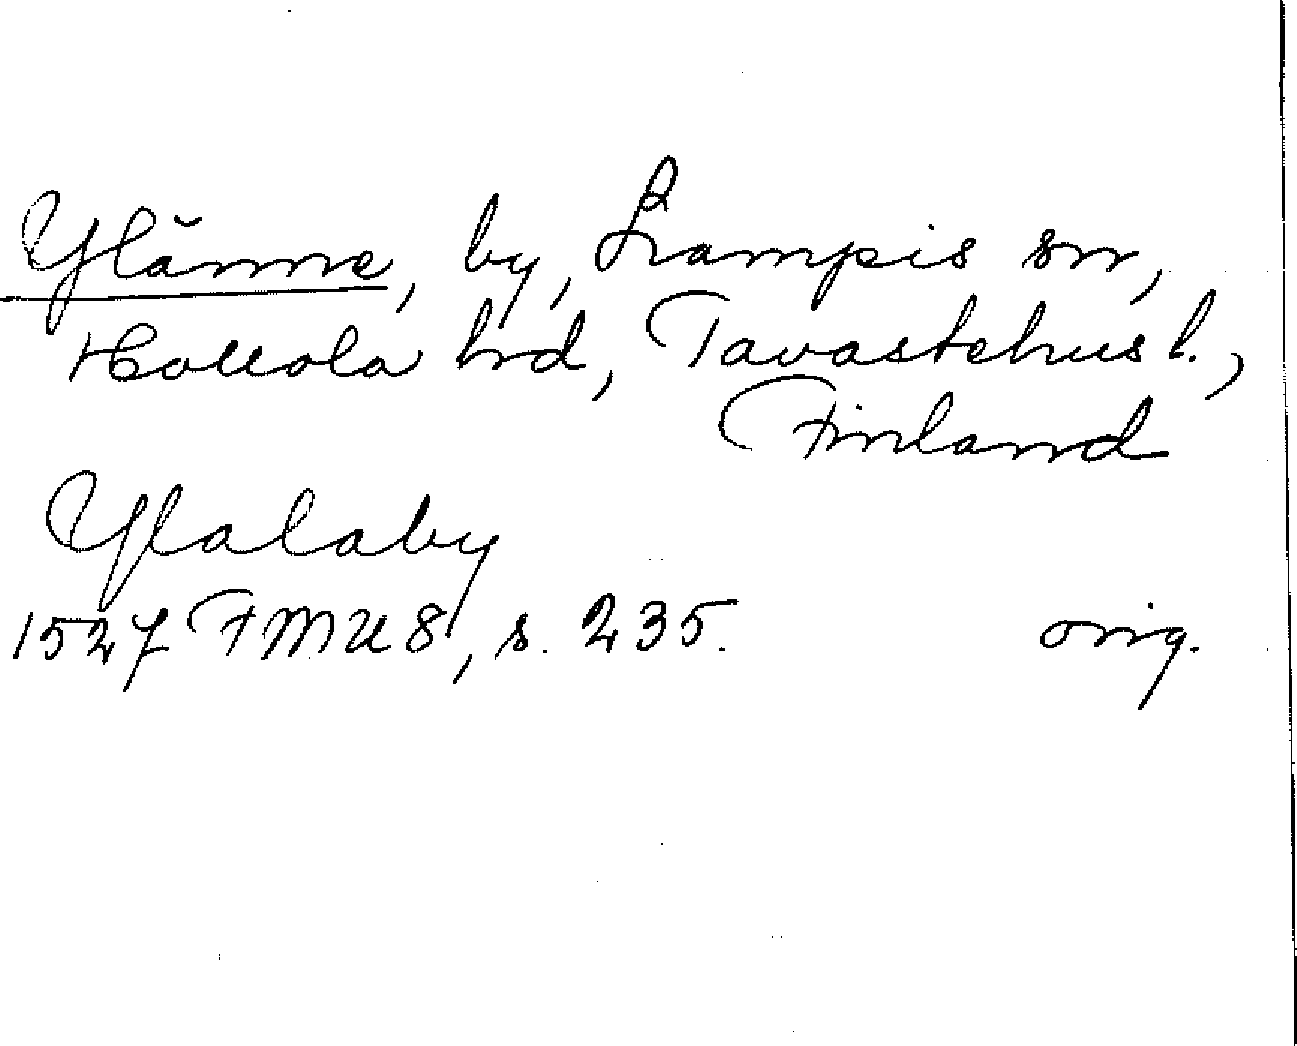 Ylänne, by, Lampis sn,
Hollola hd, Tavastehus l.,
Finland
Ylalaby
1527 FMU 8, s. 235. orig.